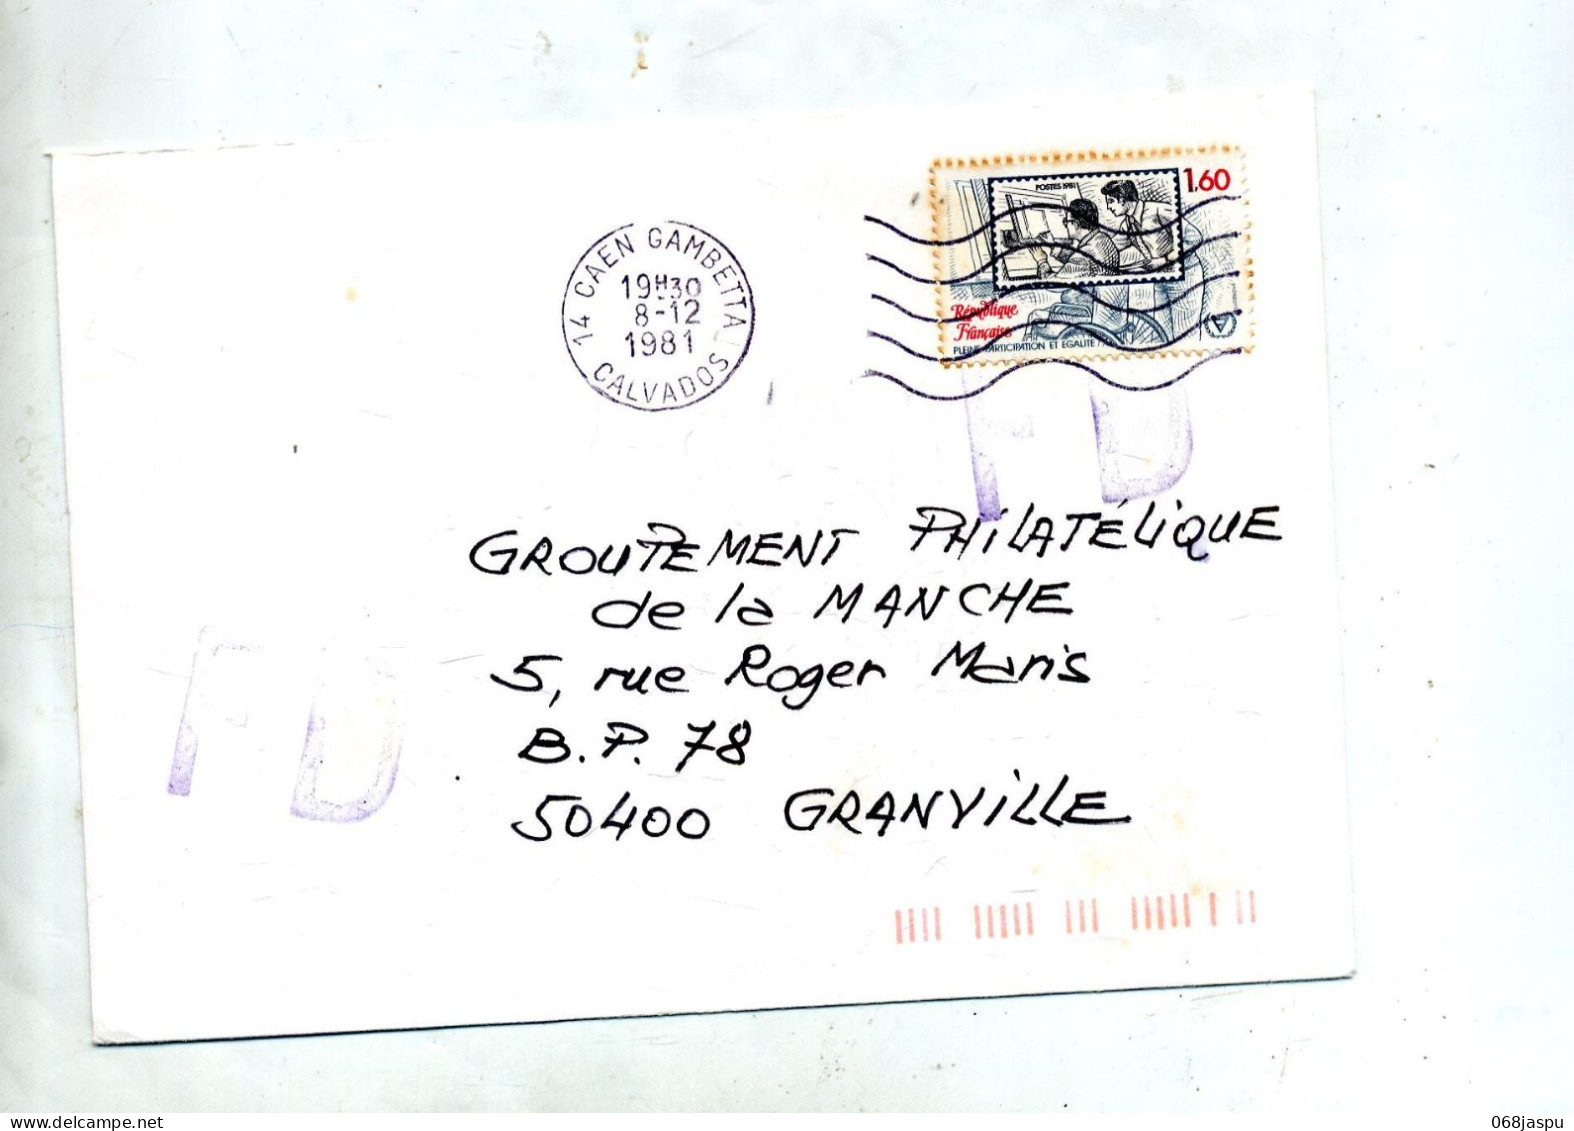 POSTES 1981
1,60
République
Française
PLEINE PARTICIPATION ET EGALITE
14 CAEN GAMBETTA
19H30
8-12
1981
CALVADOS
FD
GROUPEMENT PHILATÉLIQUE
de la MANCHE
5, rue Roger Maris
B.P. 78
50400 GRANVILLE
FD
068jaspu